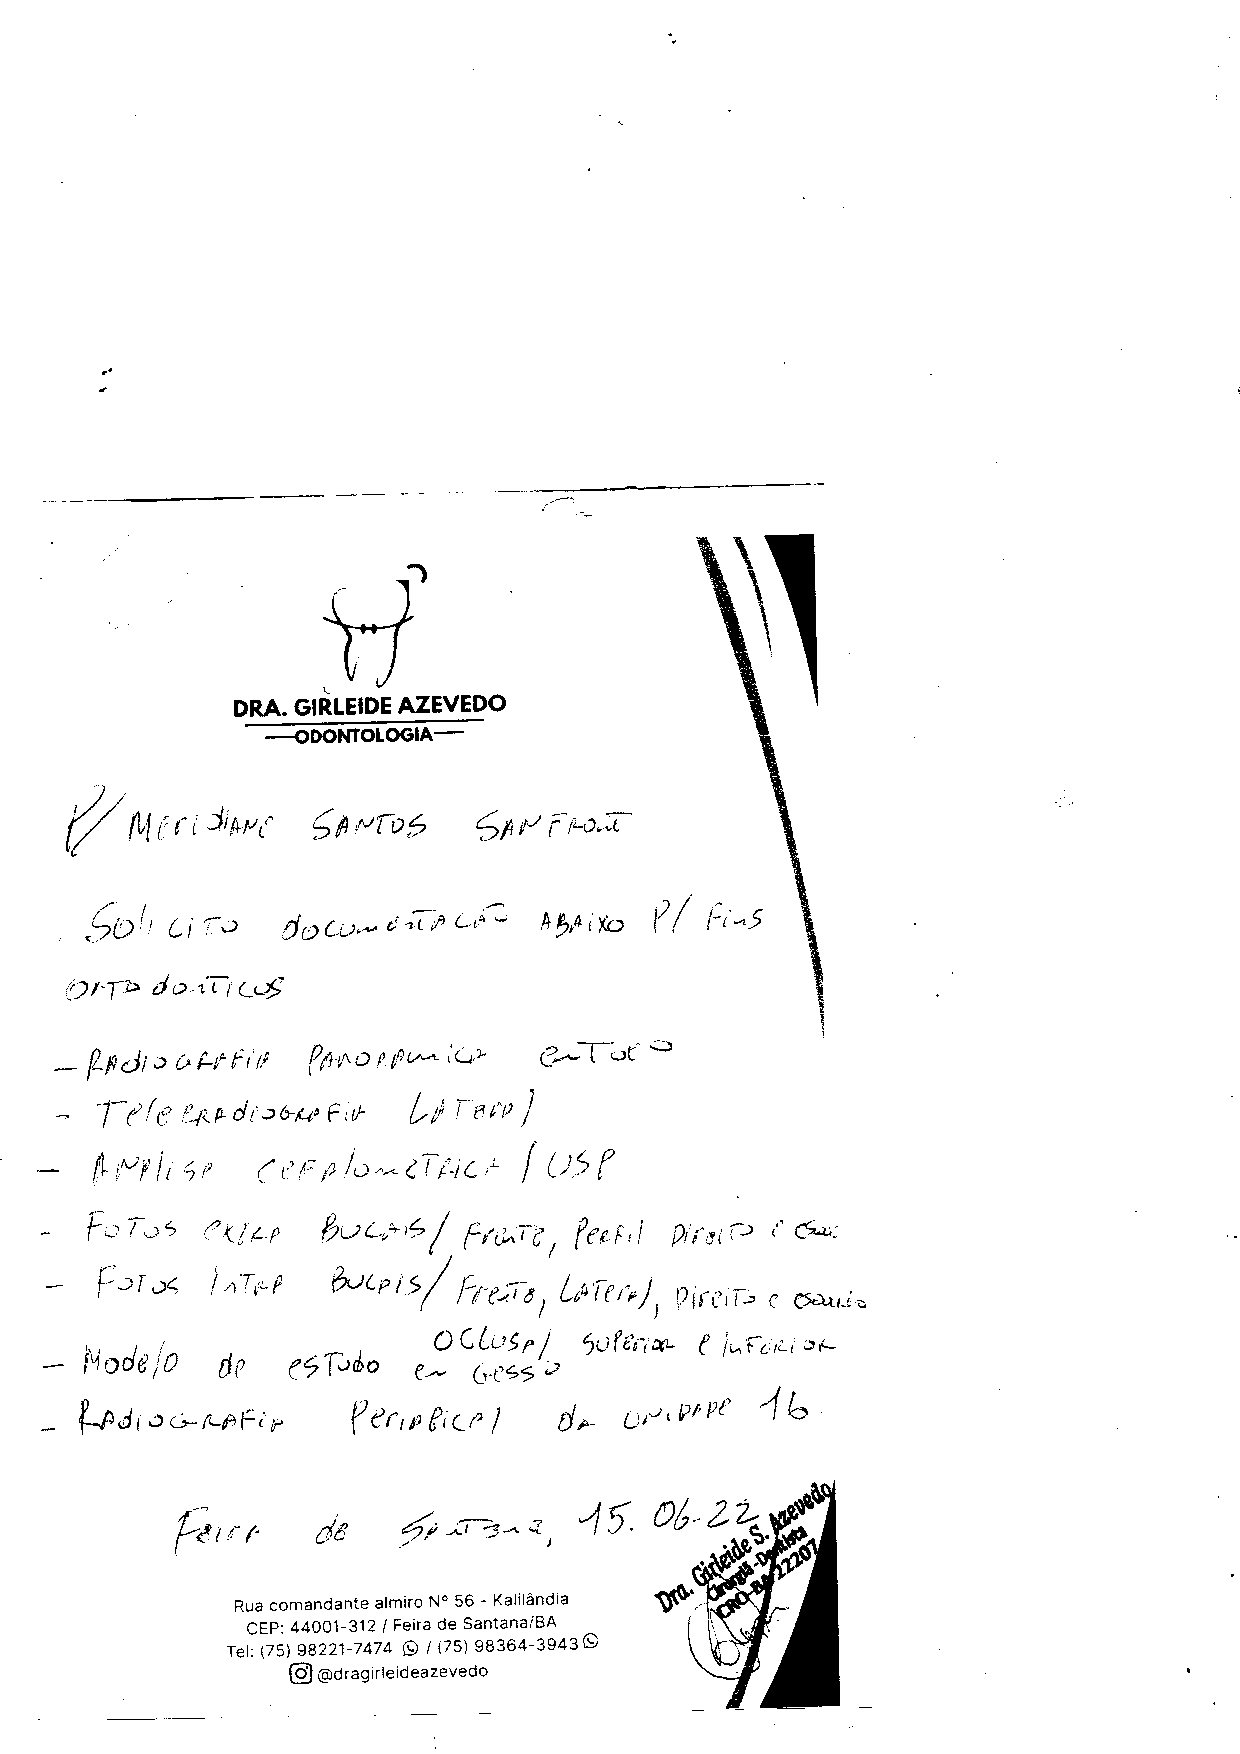 DRA. GIRLEIDE AZEVEDO
ODONTOLOGIA
P/ MERIDIANE SANTOS SANFRONT
SOLICITO DOCUMENTAÇÃO ABAIXO P/ FINS
ORTODONTICOS
- RADIOGRAFIA PANORAMICA
- TELERRADIOGRAFIA LATERAL
- ANALISE CEFALOMETRICA / USP
- FOTOS EXTRA BUCAIS / FRENTE, PERFIL DIREITO E
- FOTOS INTRA BUCAIS / FRENTE, LATERAL, DIREITO E
OCLUSAL SUPERIOR E INFERIOR
- MODELO DE ESTUDO EM GESSO
- RADIOGRAFIA PERIAPICAL DA UNIDADE 16.
FEIRA DE SANTANA, 15.06-22
Dra. Girleide S. Azevedo
Cirurgiã-Dentista
CRO-BA 22207
Rua comandante almiro Nº 56 - Kalilândia
CEP: 44001-312 / Feira de Santana/BA
Tel: (75) 98221-7474 / (75) 98364-3943
@dragirleideazevedo